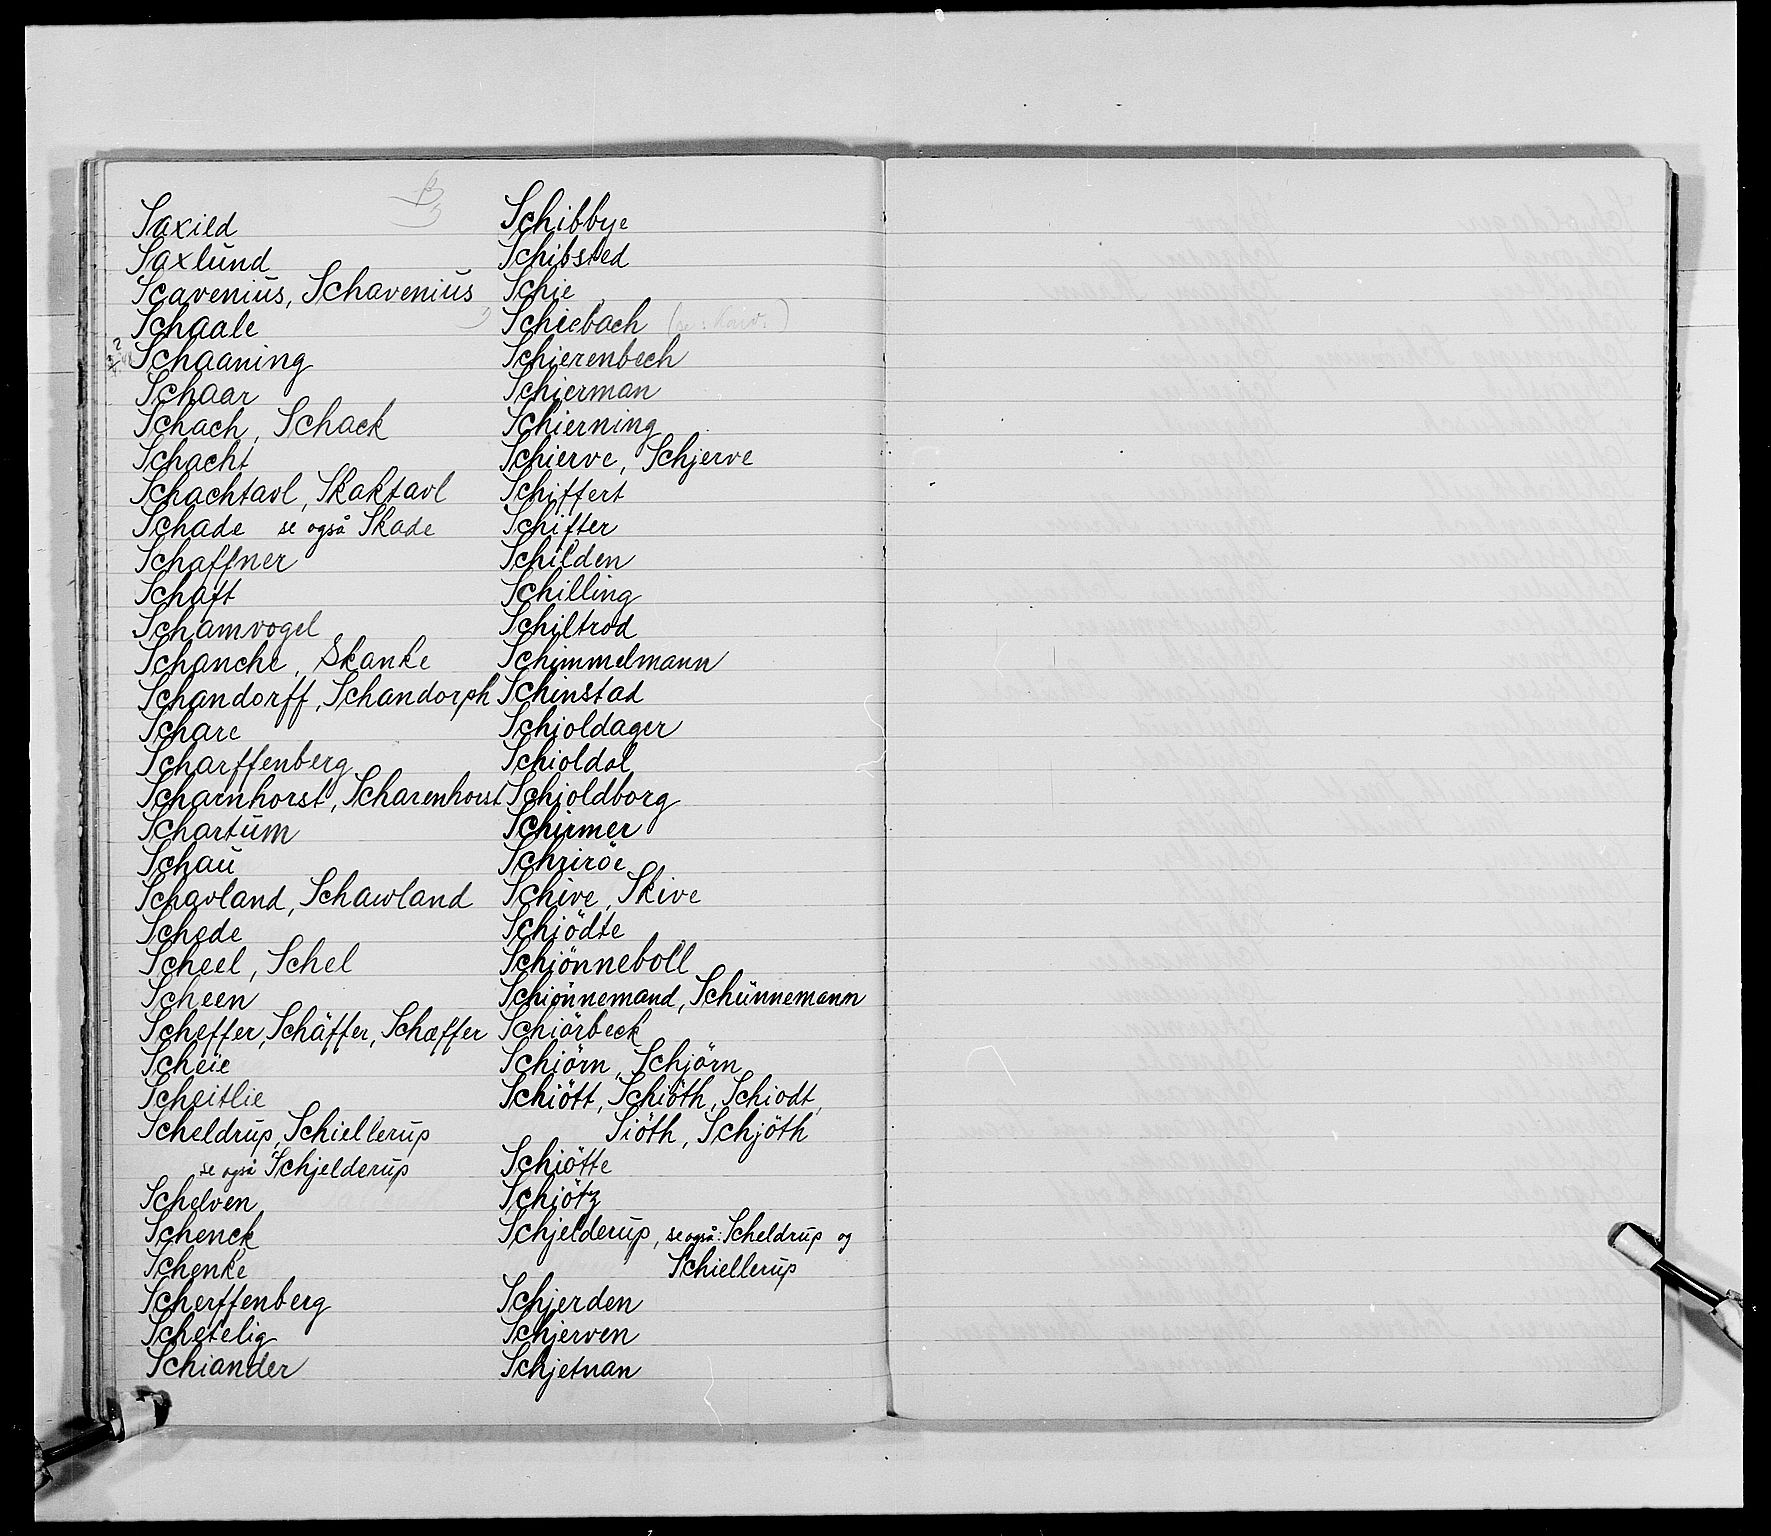 Saxild
Saxlund
Scavenius, Schavenius
Schaale
Schaaning
Schaar
Schach, Schack
Schacht
Schachtavl, Skaktavl
Schade se også Skade
Schaffner
Schaft
Schamvogel
Schanche, Skanke
Schandorff, Schandorph
Schare
Scharffenberg
Scharnhorst, Scharenhorst
Schartum
Schau
Schavland, Schawland
Schede
Scheel, Schel
Scheen
Scheffer, Schäffer, Schæffer
Scheie
Scheitlie
Scheldrup, Schiellerup
se også Schjelderup
Schelven
Schenck
Schenke
Scherffenberg
Schetelig
Schiander
Schibbye
Schibsted
Schie
Schiebach
Schierenbech
Schierman
Schierning
Schierve, Schjerve
Schiffert
Schifter
Schilden
Schilling
Schiltrod
Schimmelmann
Schinstad
Schioldager
Schioldal
Schioldborg
Schirmer
Schive, Skive
Schiödte
Schiönneboll
Schiönnemand, Schünnemann
Schiörbeck
Schiörn, Schjörn
Schiött, Schiöth, Schiodt,
Siöth, Schjöth
Schiötte
Schiötz
Schjelderup, se også: Scheldrup og
Schiellerup
Schjerden
Schjerven
Schjetnan